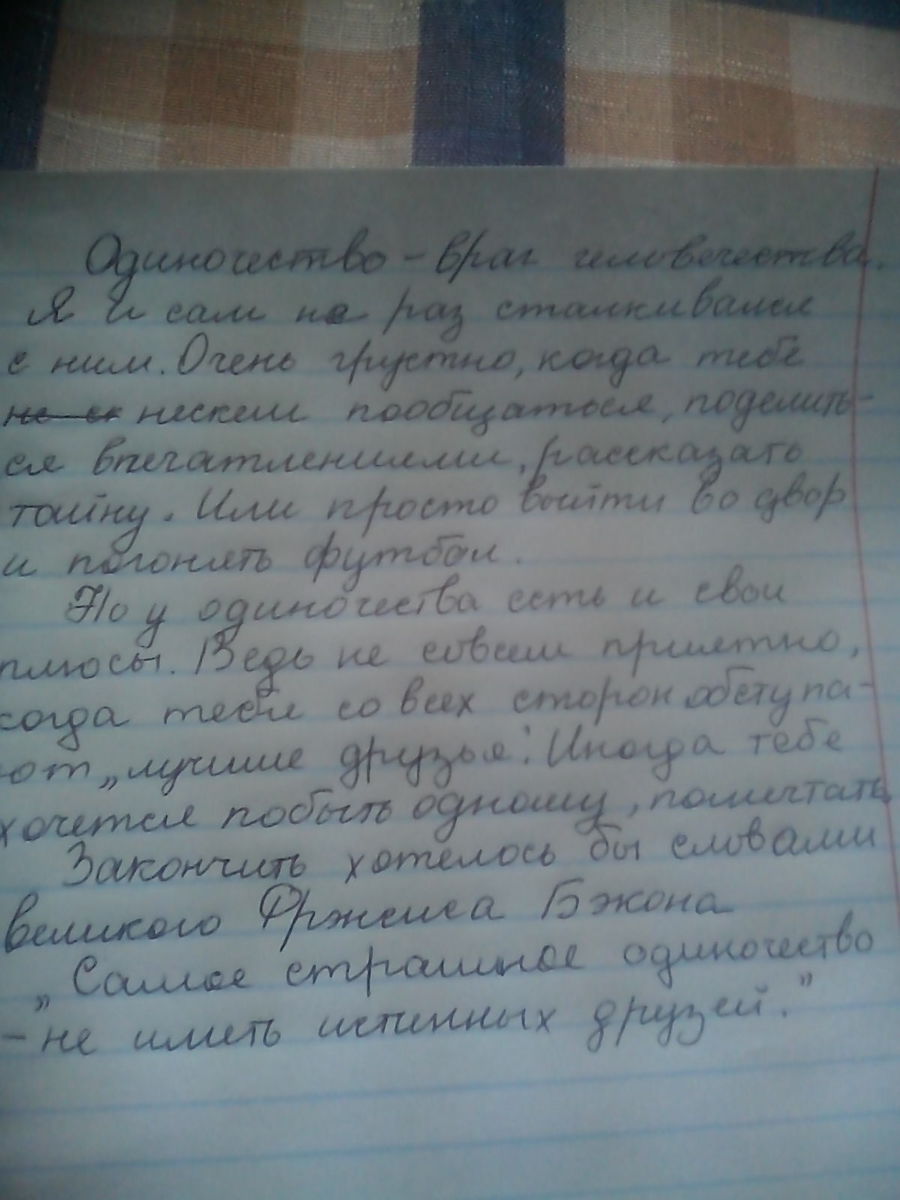 Одиночество - враг человечества.
Я и сам не раз сталкивался
с ним. Очень грустно, когда тебе
нескем пообщаться, поделить-
ся впечатлениями, рассказать
тайну. Или просто выйти во двор
и погонять футбол.
Но у одиночества есть и свои
плюсы. Ведь не совсем приятно,
когда тебя со всех сторон обступа-
ют „лучшие друзья". Иногда тебе
хочется побыть одному, помечтать
Закончить хотелось бы словами
великого Фржсиса Бэкона
„Самое страшное одиночество
- не иметь истинных друзей."